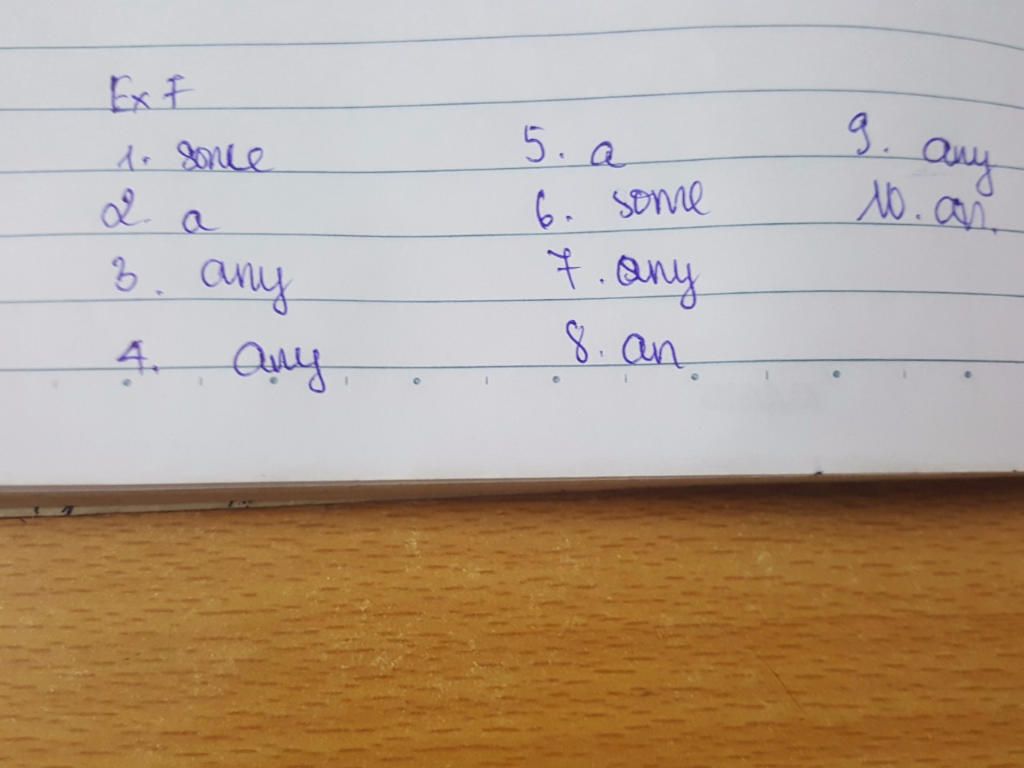 Ex F
1. some
2. a
3. any
4. any
5. a
6. some
7. any
8. an
9. any
10. an.